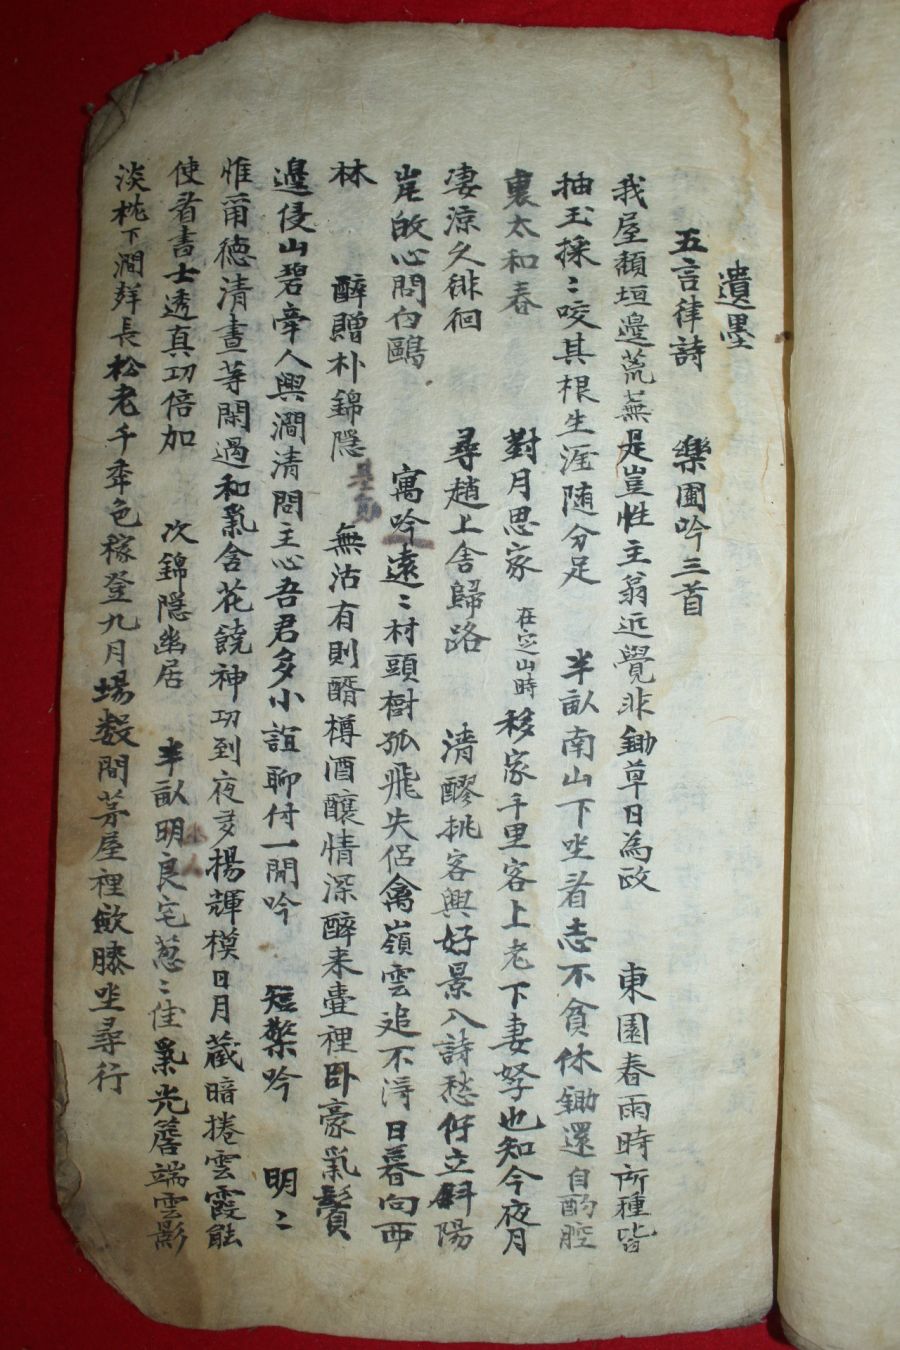 遺墨
五言律詩 樂圃吟三首
我屋頹垣邊荒蕪是豈性主翁近覺非鋤草日為政 東園春雨時所種皆
抽玉採〻咬其根生涯随分足 半畒南山下坐看志不貪休鋤還自酌腔
裏太和春 對月思家 在定山時 移家千里客上老下妻孥也知今夜月
凄涼久徘徊 尋趙上舍歸路 清醪挑客興好景入詩愁佇立斜陽
岸的心問白鷗 寓吟遠〻村頭樹孤飛失侶禽嶺雲追不淂日暮向西
林 醉贈朴錦隱 無沽有則酳樽酒釀情深醉来壷裡卧豪氣鬢
邊侵山碧牽人興澗清問主心吾君多小誼聊付一開吟 短檠吟 明〻
惟甭德清晝等閑過和氣含花饒神功到夜多揚輝模日月蔵暗捲雲霞能
使看書士透真功倍加 次錦隱幽居 半畒明良宅葱〻佳氣光簷端雲影
淡枕下澗聲長松老千秊色稼登九月場数間茅屋裡歛膝坐尋行